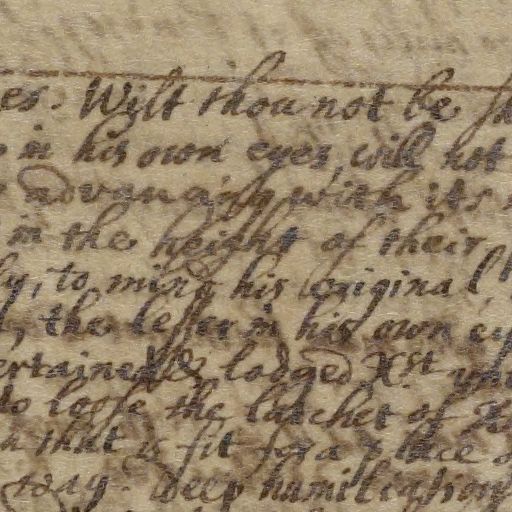 es. Wilt thou not be
in his own eyes, will not
advancing with its
in the height of their
ly, to mind his original,
the lesser in his own
ertained & lodged Xst
to loose the latchet of
that is fit for a place
day. Deep humiliation